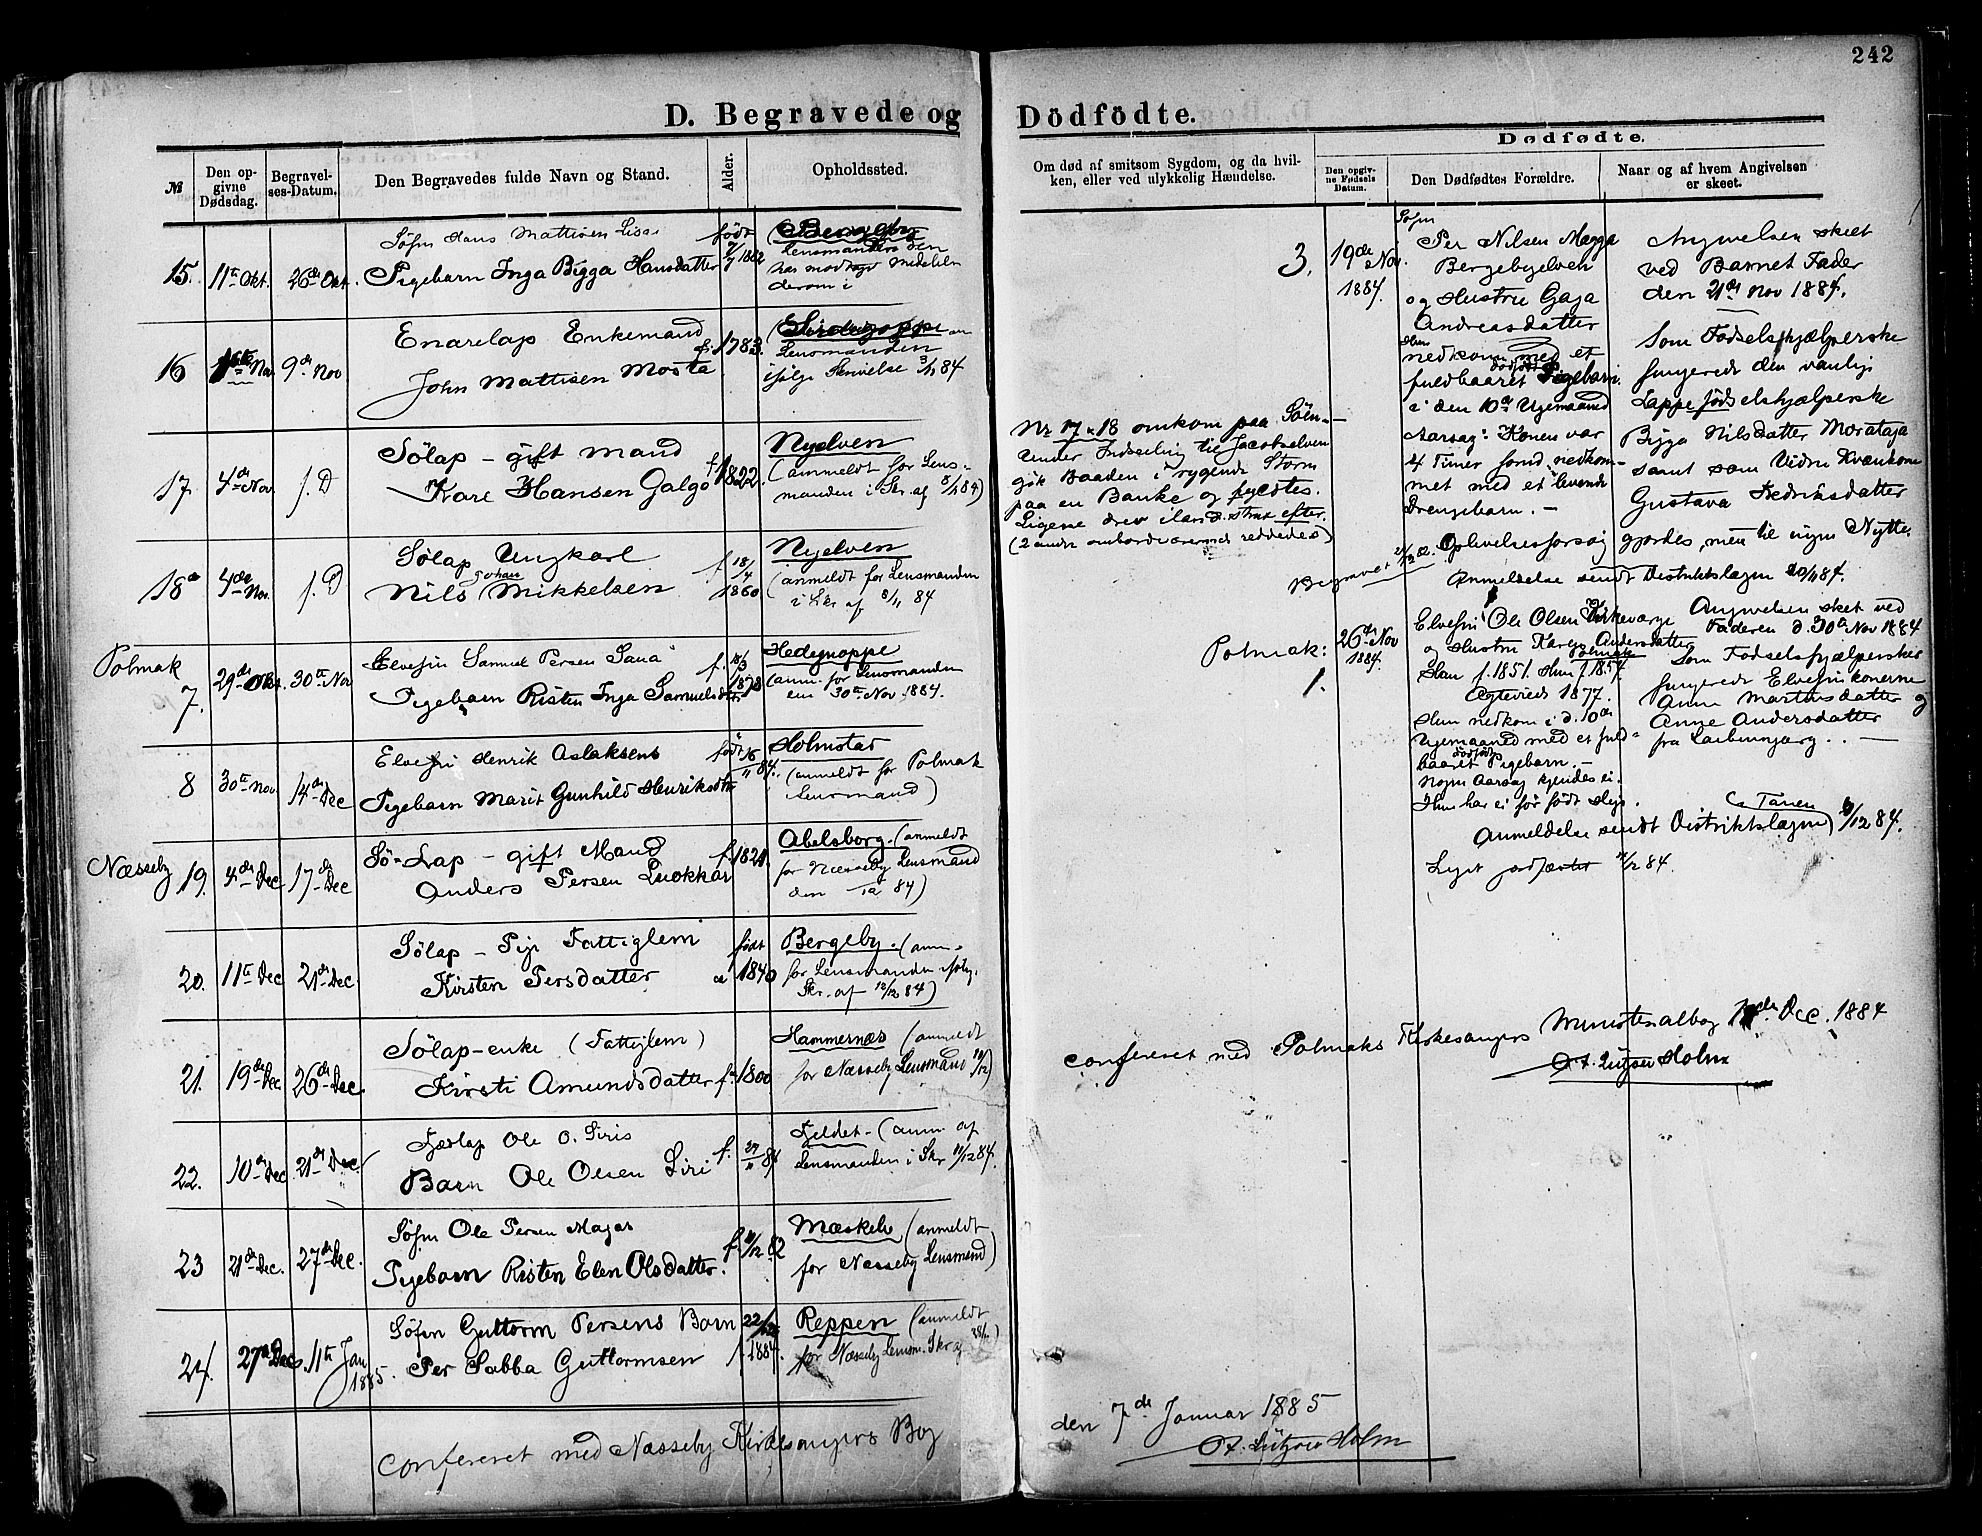 242
D. Begravede og Dödfödte.
№
Den opgivne Dødsdag.
Begravelses-Datum.
Den Begravedes fulde Navn og Stand.
Alder.
Opholdssted.
Om død af smitsom Sygdom, og da hvilken, eller ved ulykkelig Hændelse.
Dødfødte.
Den opgivne Fødsels Datum.
Den Dødfødtes Forældre.
Naar og af hvem Angivelsen er skeet.
Söfin Hans Mattisen
15. 11te Okt. 26de Okt. Pigebarn Inga Bigga Hansdatter
født
Lensmanden
derom i
Enarelap Enkemand
16 Nov 9de Nov
John Mattisen Mosta
f. 1783.
Lensmanden
ifølge Skrivelse 3/11 84
Sölap - gift mand
17. 4de Nov. s. D
Kare Hansen Galgo
f. 1822.
Nyelven
(anmeldt for Lensmanden i Skr. af 8/11 84)
Sölap Ungkarl
18 4de Nov. s. D
Nils Johan Mikkelsen
f. 18/4 1860
Nyelven
(anmeldt for Lensmanden
i Skr af 8/11 84
Polmak
Elvefin Samuel Persen
7. 29de Okt. 30te Nov
Pigebarn Risten Inga Samuelsdtr
f. 18/3 1878
Hedegnoppe
(anm. for Lensmanden
30te Nov. 1884.
Elvefin Henrik Aslaksens
8 30te Nov 14de Dec
Pigebarn Marit Gunhild Henriksdtr
født 16/11 84.
Holmstad
(anmeldt for Polmak
Lensmand)
Næsseby
Sö-Lap - gift Mand
19. 4de Dec 17de Dec
Anders Persen Luokkar
Abelsborg. (anmeldt
for Næsseby Lensmand
den 84)
Sölap - Pige Fattiglem
20. 11te Dec 21de Dec.
Kirsten Persdatter
født
ca 1840
Bergeby. (anm.
for Lensmanden ifølg.
Skr. af 12/12 84)
Sölap-enke (Fattiglem)
21. 19de Dec 26de Dec.
Kirsti Amundsdatter
f. 1800
Hammernæs (anmeldt
for Næsseby Lensmand
Fjeldlap Ole O. Siris
22. 10de Dec 21de Dec
Barn Ole Olsen Siri
f. 84
Fjeldet - (anm. af
Lensmanden i Skr 11/12 84.
Söfin Ole Persen Majas
23 21de Dec. 27de Dec.
Pigebarn Risten Elen Olsdatter.
f. 82
Mæskelv (anmeldt
for Næsseby Lensmand)
Söfin Guttorm Persens Barn
24. 27de Dec. 11te Jan 1885.
Per Sabba Guttormsen
1884.
Reppen (anmeldt
for Næsseby Lensm. Skr af
Confereret med Næsseby Kirkesangers Bog
den 7de Januar 1885
A. Lützow Holm
Nr 17 & 18 omkom paa Söen -
Under Indseiling til Jacobselven
gik Baaden i rygende Storm
paa en Banke og fyldtes.
Ligene drev iland strax efter.
(2 andre ombordværende reddedes)
3. 19de Nov. 1884.
Söfin
Per Nilsen Magga
Bergebyelven
og Hustru Gaja
Andreasdatter
Hun
nedkom med et
fuldbaaret dødfødt Pigebarn.
i den 10de Ugemaaned
Aarsag: Konen var
4 Timer forud nedkommet med et levende
Drengebarn. -
Oplivelsesforsøg gjordes, men til ingen Nytte.
Anmeldelse sendt Distriktslægen
Begravet
Angivelsen skeet
ved Barnets Fader
den 21de Nov 1884.
Som Fødselshjælperske
fungerede den vanlig
Lappefødselshjælperske
Bigga Nilsdatter
samt som Vidne Kvænkone
Gustava Fredriksdatter
Polmak: 1.
26de Nov 1884.
Elvefin Ole Olsen Kirkeværge
og Hustru Karen Andersdatter
Polmak
Han f. 1851. Hun f. 1854.
Egteviede 1877.
Hun nedkom i d. 10de
Ugemaaned med et fuldbaaret dødfødt Pigebarn. -
Nogen Aarsag kjendes ei.
Hun har ei før født
Angivelsen sket ved
Faderen d. 30te Nov 1884
Som Fødselshjælpersker
fungerede Elvefinkonerne
Anne Martinsdatter og
Anne Andersdatter
fra
Anmeldelse sendt Distriktslægen i Tanen 12 84.
Liget jordfæstet 84.
Confereret med Polmaks Kirkesangers Ministerialbog Dec. 1884
A. Lützow Holm